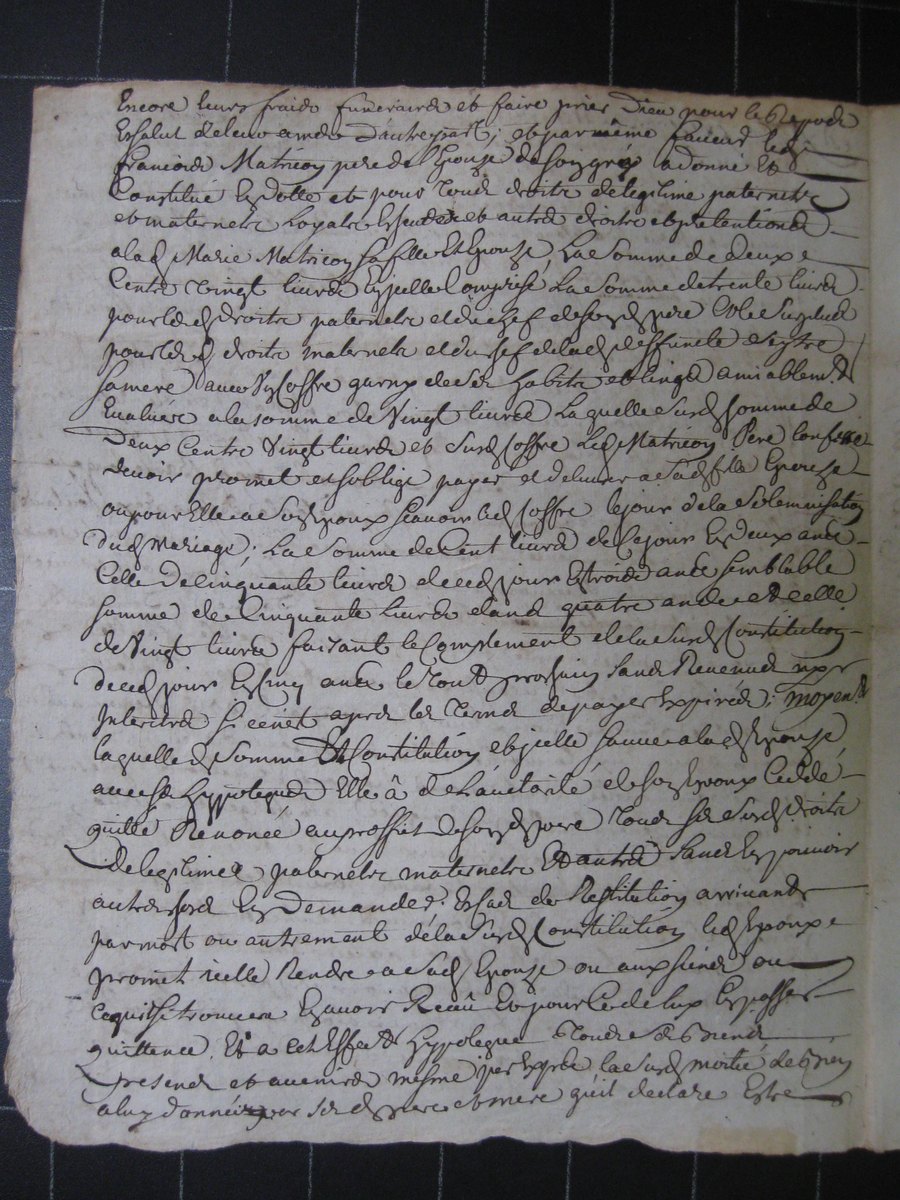 Encore leurs fraids funeraires et faire prier Dieu pour le Repode
Et salut de leurs ames D'autrepart; et par même faueur led
Francois Matricon pere de l'Epouze de son gré a donné et
Constitué En dotte et pour tous droits de legitime paternels
et maternels Loyale Escheute et autres droits et pretentions
a lad Marie Matricon sa fille et Epouze, La somme de deux
Cents vingt liures En jcelle Comprise La somme de trente liures
pour lesd droits paternels et du chef de sond pere et le surplus
pour lesd droits maternels et du chef de lad deffuncte
sa mere auec un coffre garny de ses habits et linge amiablemt
Eualués a la somme de Vingt liures Laquelle susd somme de
Deux Cents Vingt liures et susd coffre led Matricon Pere confesse
deuoir promet et s'oblige payer et deliurer a sad fille Epouze
ou pour Elle a son Epoux scauoir led coffre le jour de la solemnisation
dud mariage; La somme de Cent liures de ce jour En deux ans
Celle de cinquante liures de ced jour En trois ans semblable
somme de Cinquante liures dans quatre ans et celle
de Vingt liures faisant le Complement de la susd Constitution
de ced jour En cinq ans le tout prochain sans Reuenus ny
Interets si ce n'est apres les termes de payer Expirés; moyent
laquelle d somme et Constitution et jcelle sauue a lad Epouze
auec ses hyppoteques Elle â de l'auctorité de son Epoux Cedé
quitté Renoncé au proffit de sond pere tous ses susd droits
de legitimes paternels maternels et autres sans En pouuoir
autre chose En Demander. Et cas de Restitution arriuant
par mort ou autrement de la susd Constitution led Epoux
promet icelle Rendre a sad Epouze ou aux siens ou
ce qui se trouuera En auoir Receu Et pour Ce de luy En passer
quittence, Et a cet Effect hyppoteque tous ses biens
presens et auenirs mesme par Exprés la susd moitié de bien
a luy donnée par sesd pere et mere qu'il declare Estre